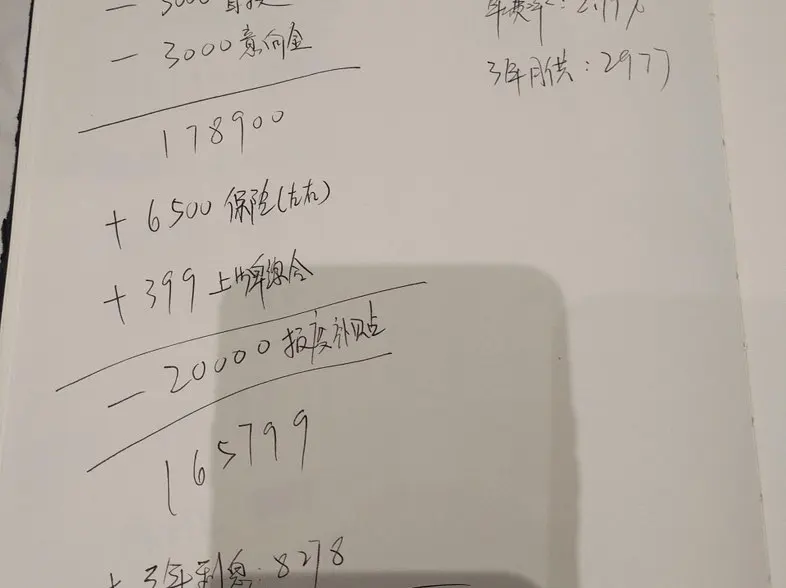 - 3000 置换
- 3000 意向金
178900
+ 6500 保险(左右)
+ 399 上牌综合
- 20000 报废补贴
165799
+ 3年利息: 8278
年费率: 2.17%
3年月供: 2977